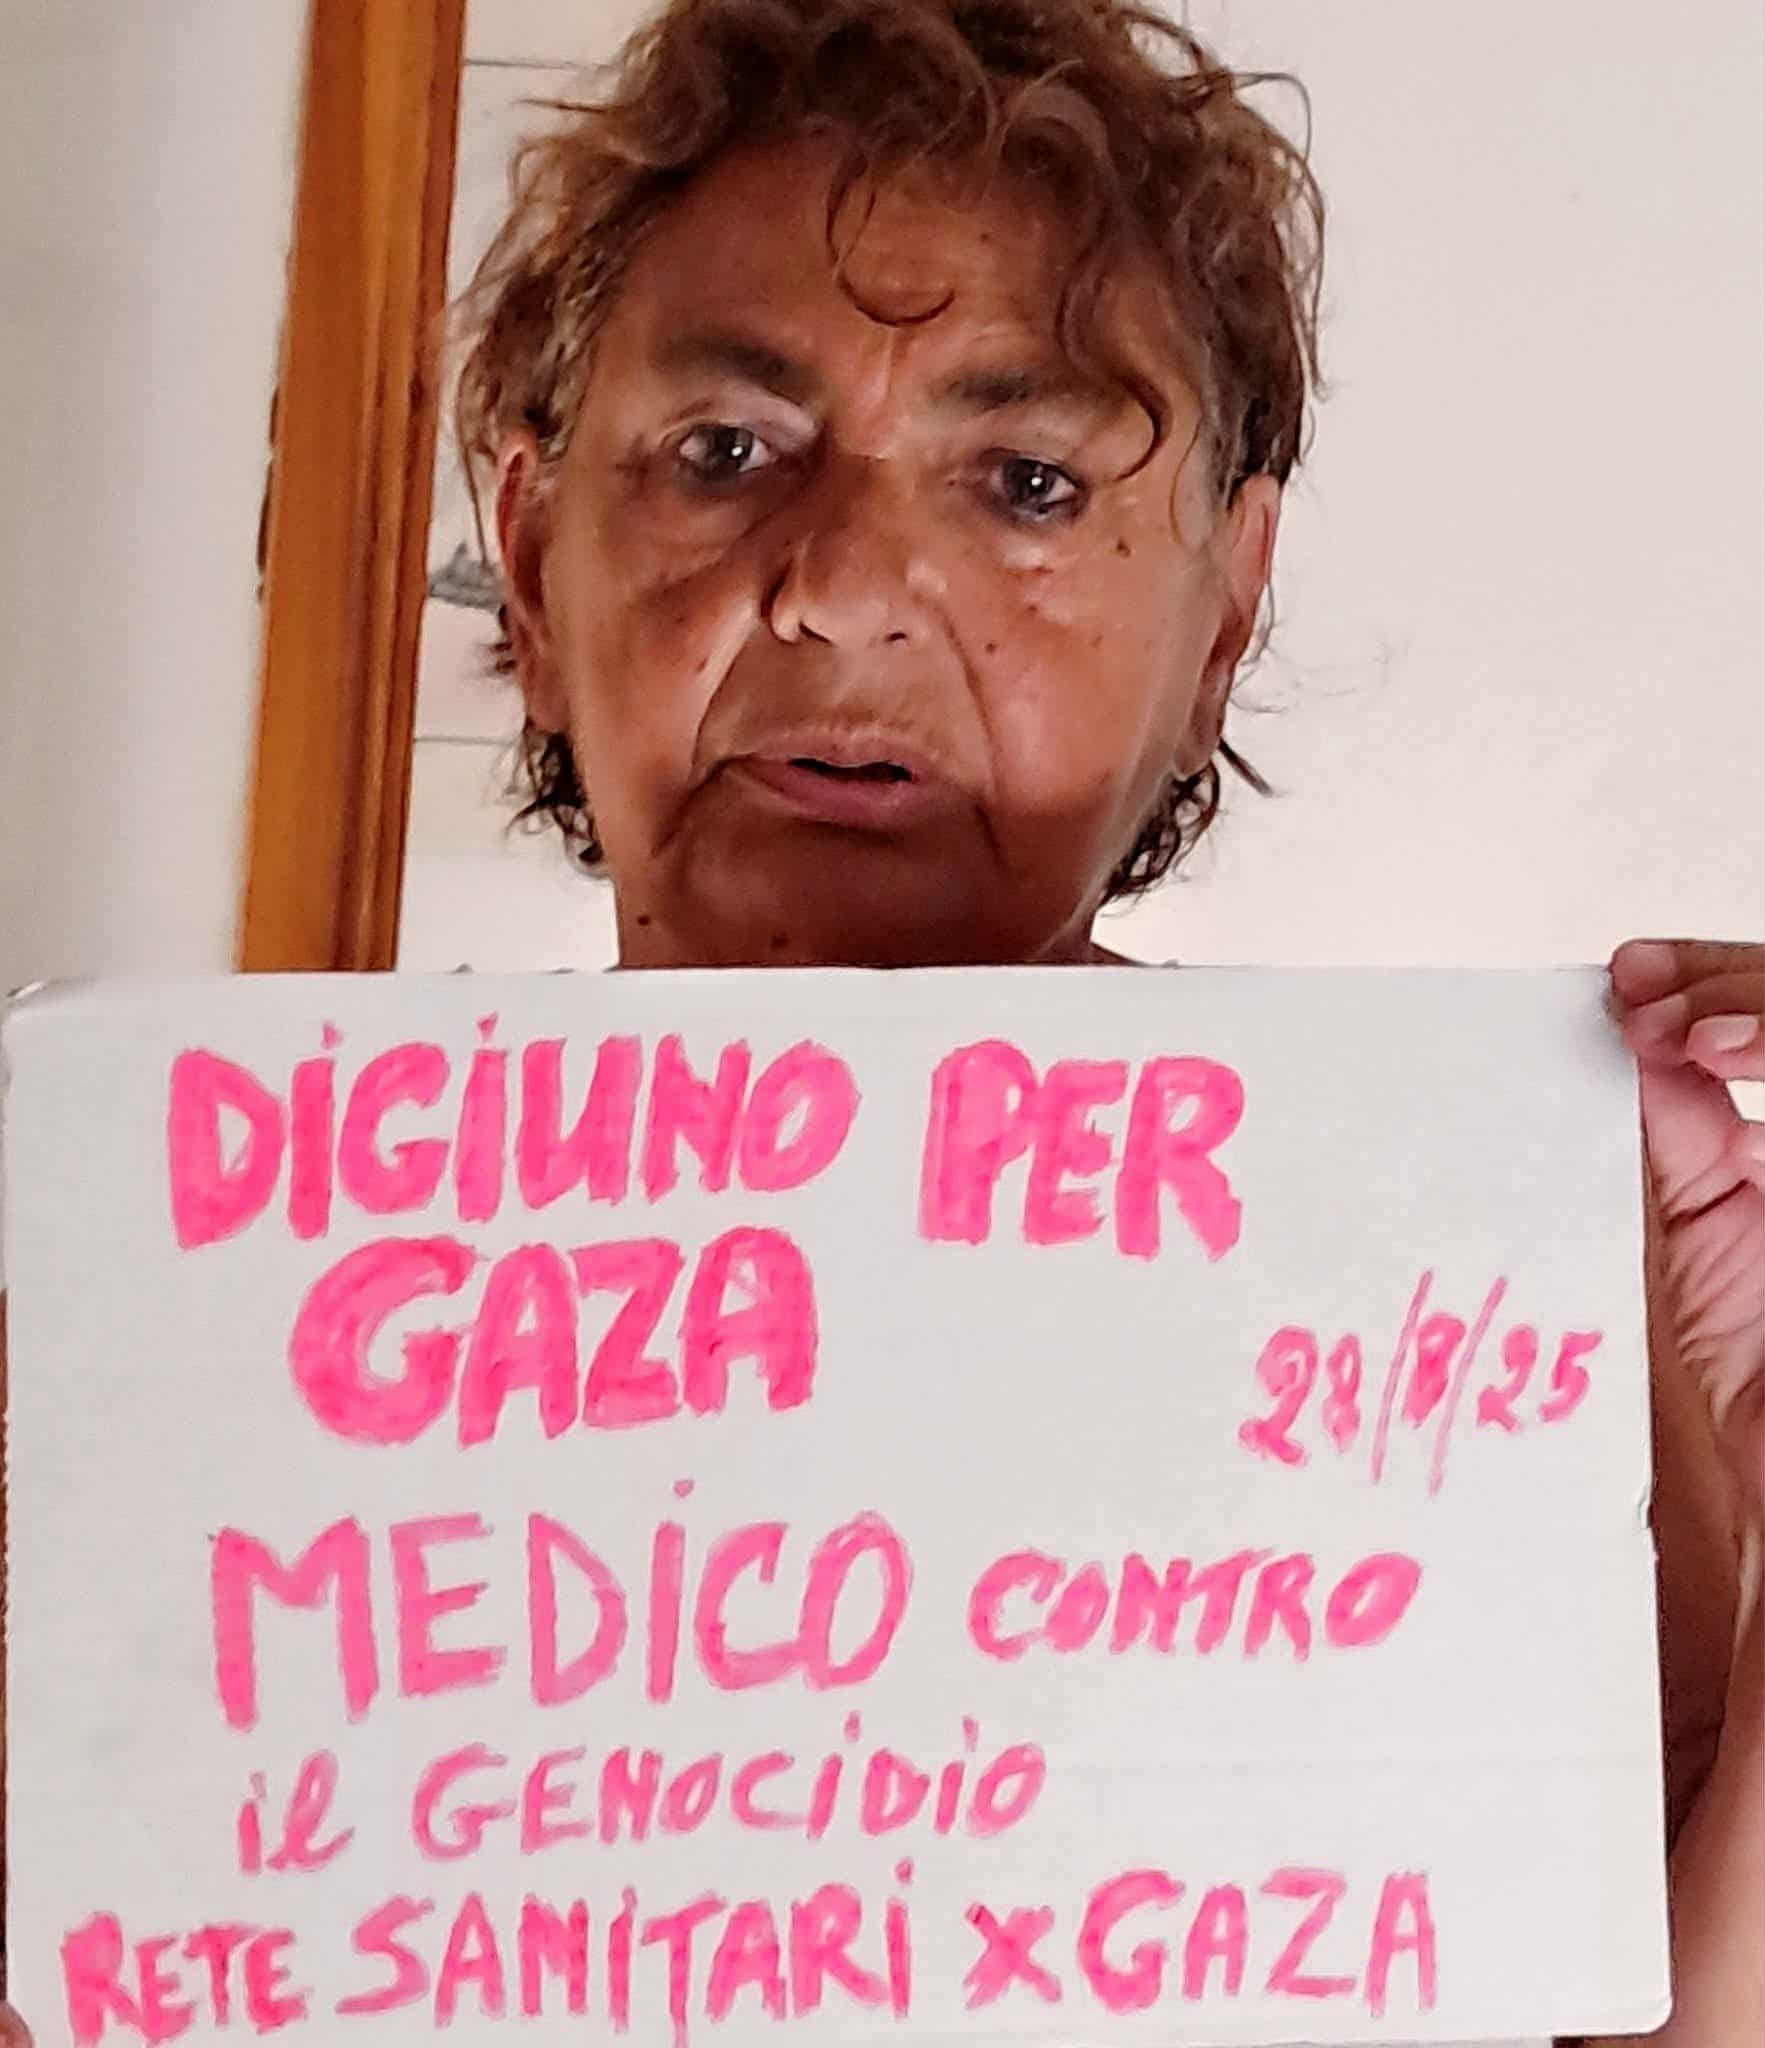 DIGIUNO PER
GAZA
28/8/25
MEDICO CONTRO
il GENOCIDIO
RETE SANITARI X GAZA